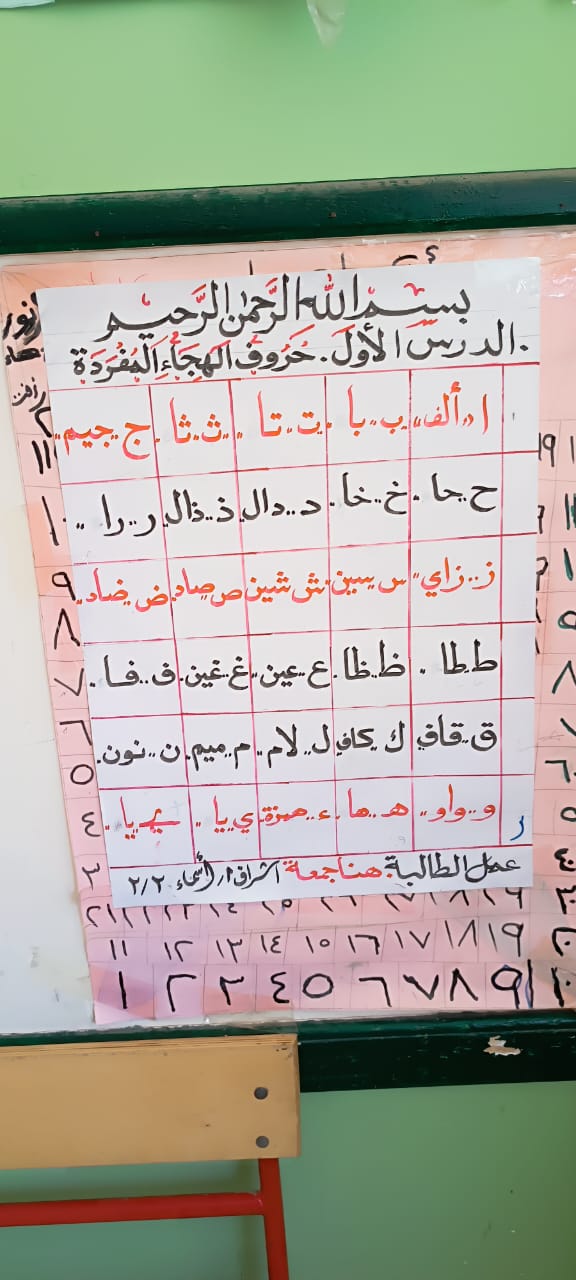 بسم الله الرحمن الرحيم
الدرس الأول. حُرُوفُ الهِجَاءِ المُفْرَدَة
ا.. ألف.. ب.. با.. ت.. تا.. ث.. ثا.. ج.. جيم..
ح.. حا.. خ.. خا.. د.. دال.. ذ.. ذال.. ر.. را..
ز.. زاي.. س.. سين.. ش.. شين.. ص.. صاد.. ض.. ضاد..
ط.. طا.. ظ.. ظا.. ع.. عين.. غ.. غين.. ف.. فا..
ق.. قاف.. ك.. كاف.. ل.. لام.. م.. ميم.. ن.. نون..
و.. واو.. هـ.. ها.. ء.. همزة.. ي.. يا.. ے.. يا..
عمل الطالبة: هنا جمعة اشراف ا/ أسماء ٢/٢
١١ ١٢ ١٣ ١٤ ١٥ ١٦ ١٧ ١٨ ١٩
١ ٢ ٣ ٤ ٥ ٦ ٧ ٨ ٩ ١٠